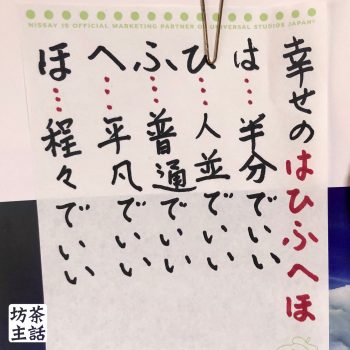 NISSAY IS OFFICIAL MARKETING PARTNER OF UNIVERSAL STUDIOS JAPAN
幸せのはひふへほ
は…半分でいい
ひ…人並でいい
ふ…普通でいい
へ…平凡でいい
ほ…程々でいい
坊主茶話